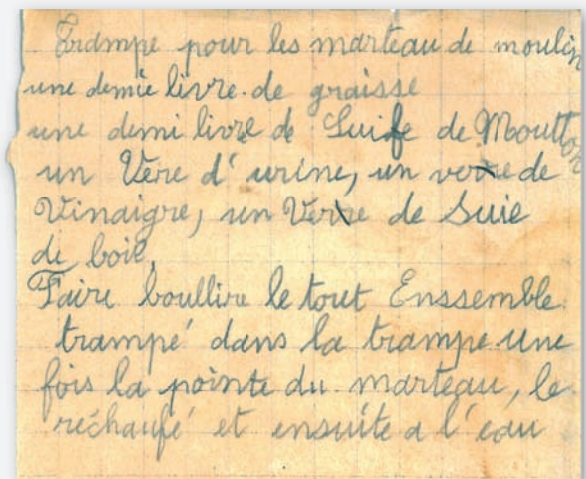 Trampe pour les marteau de moulin
une demie livre de graisse
une demi livre de Suife de Moutton
un Vere d'urine, un verre de
Vinaigre, un Verre de Suie
de bois.
Faire boullire le tout Enssemble
trampé dans la trampe une
fois la pointe du marteau, le
réchaufé et ensuite a l'eau